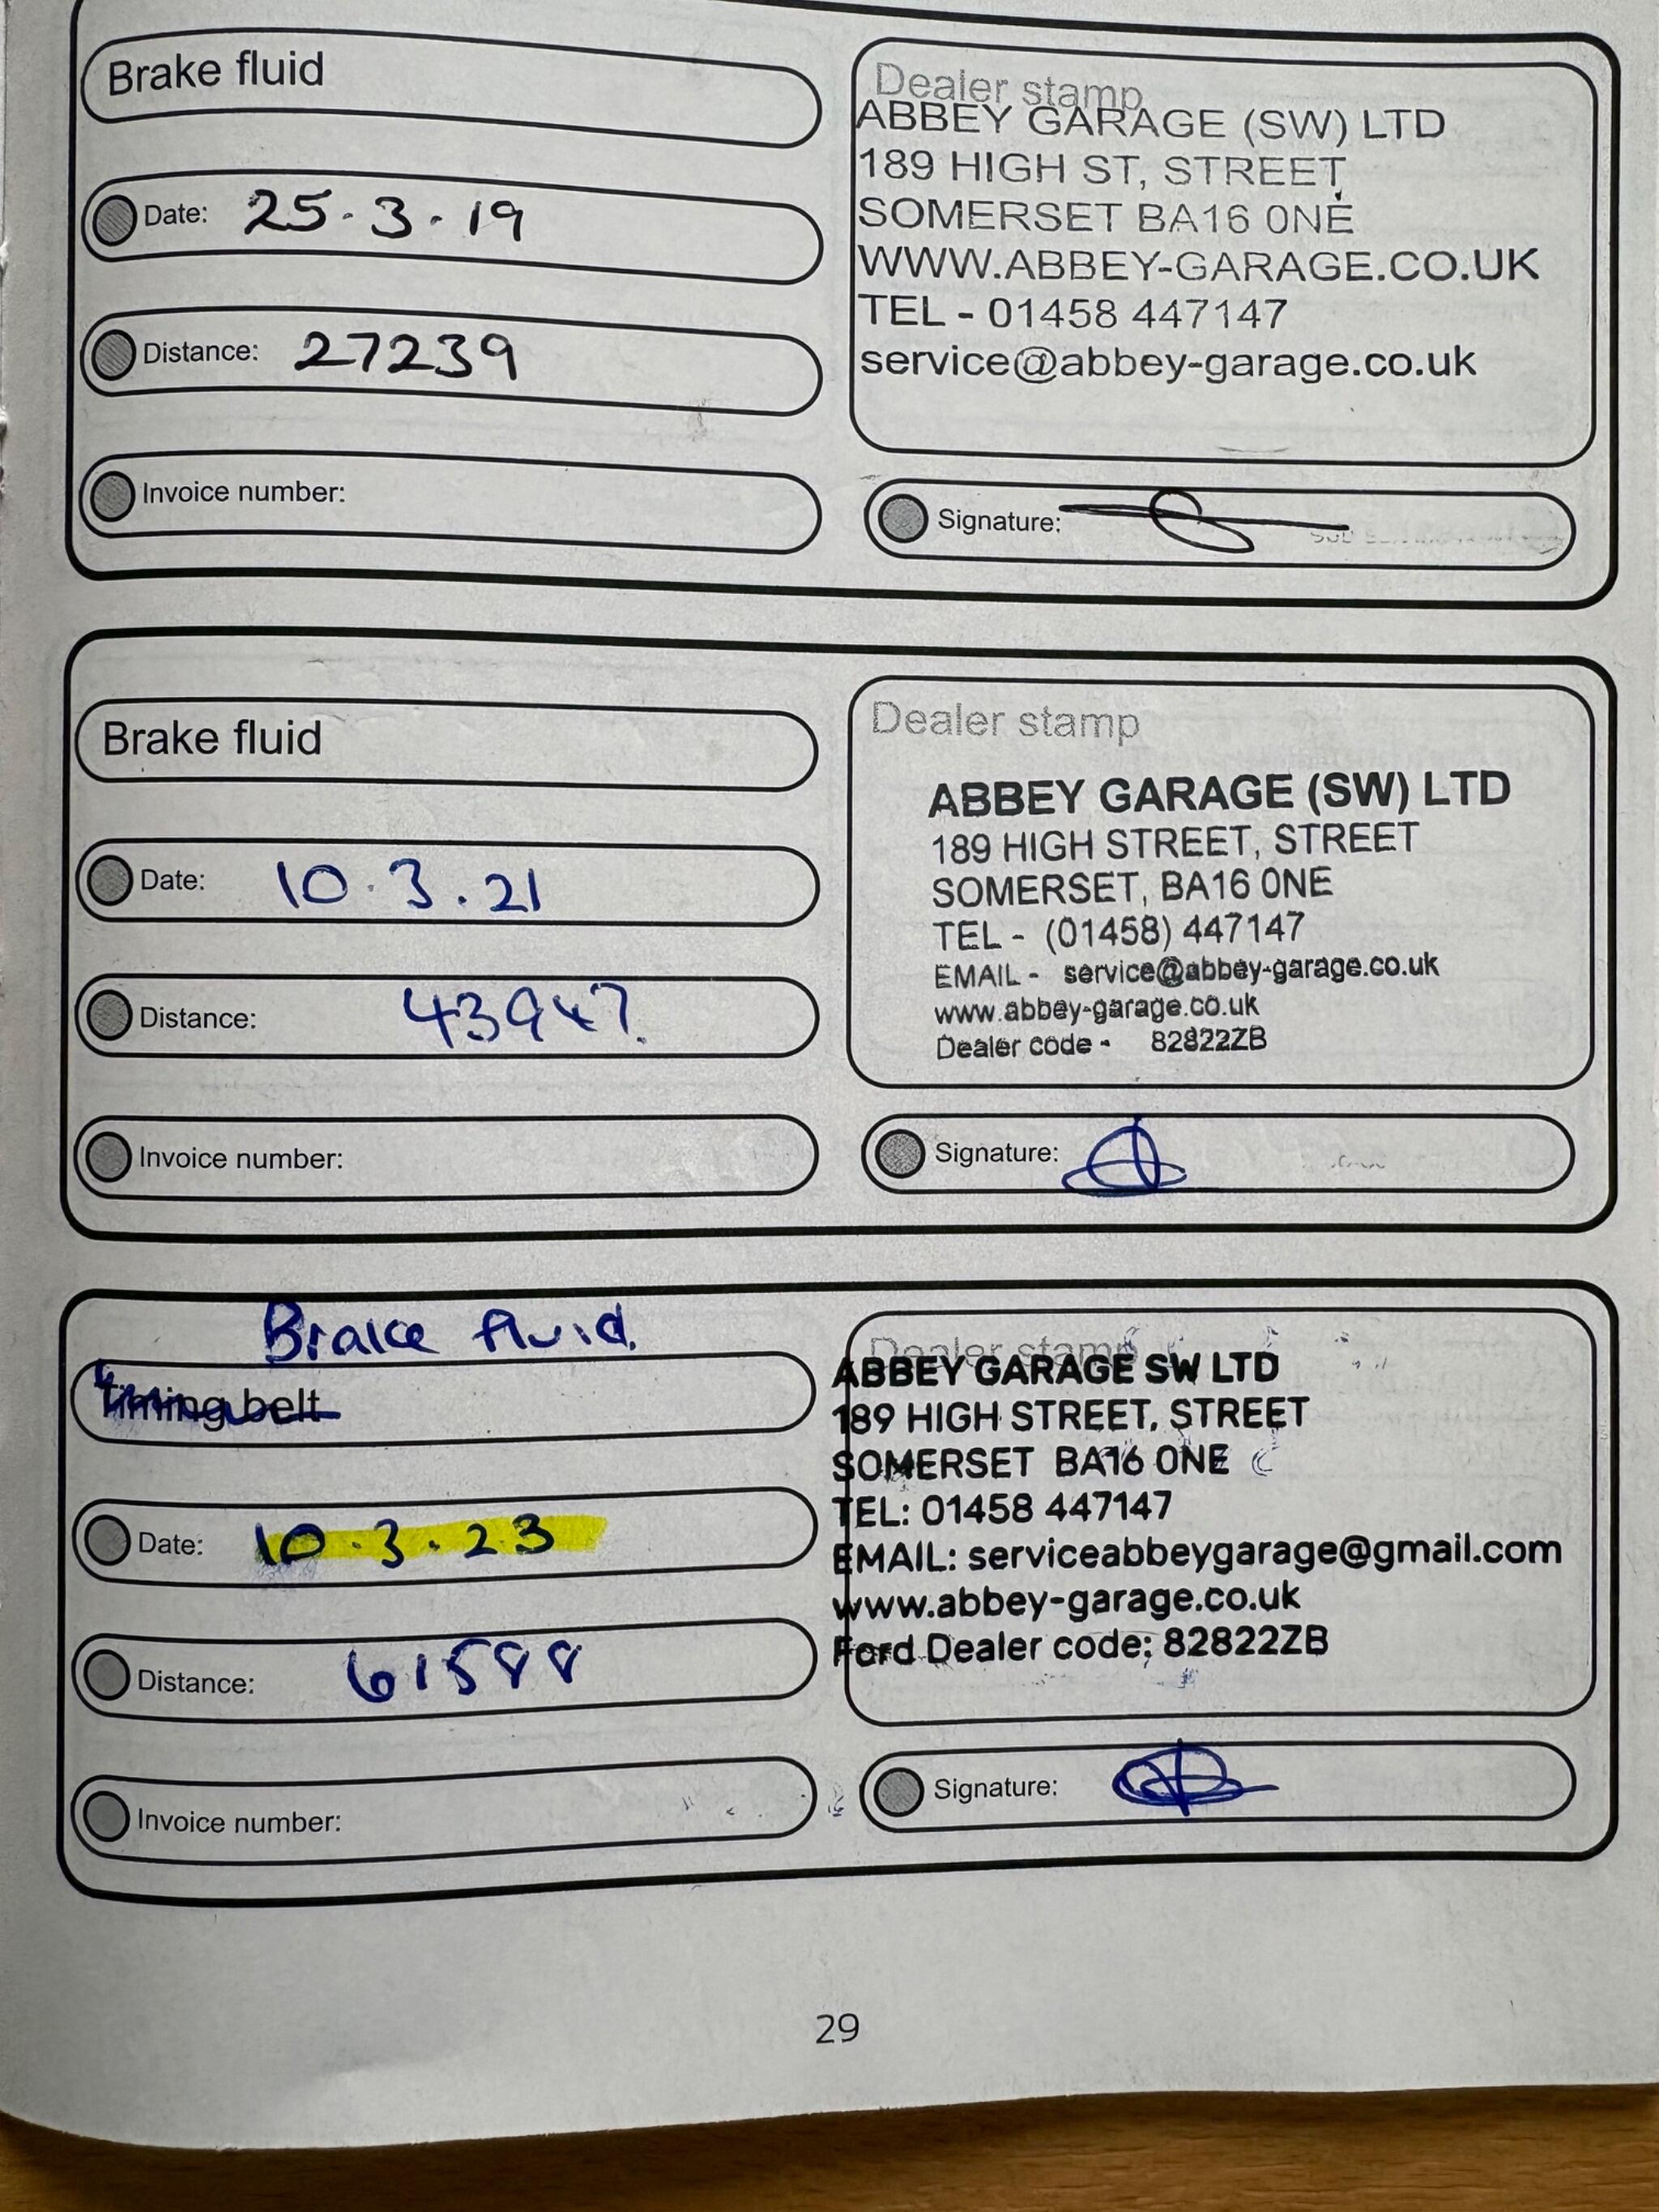 Brake fluid
Date: 25.3.19
Distance: 27239
Invoice number:
Dealer stamp
ABBEY GARAGE (SW) LTD
189 HIGH ST, STREET
SOMERSET BA16 0NE
WWW.ABBEY-GARAGE.CO.UK
TEL - 01458 447147
service@abbey-garage.co.uk
Signature:
Brake fluid
Date: 10.3.21
Distance: 43947
Invoice number:
Dealer stamp
ABBEY GARAGE (SW) LTD
189 HIGH STREET, STREET
SOMERSET, BA16 0NE
TEL - (01458) 447147
EMAIL - service@abbey-garage.co.uk
www.abbey-garage.co.uk
Dealer code - 82822ZB
Signature:
Brake fluid.
Timing belt
Date: 10.3.23
Distance: 61588
Invoice number:
Dealer stamp
ABBEY GARAGE SW LTD
189 HIGH STREET, STREET
SOMERSET BA16 0NE
TEL: 01458 447147
EMAIL: serviceabbeygarage@gmail.com
www.abbey-garage.co.uk
Ford Dealer code: 82822ZB
Signature:
29